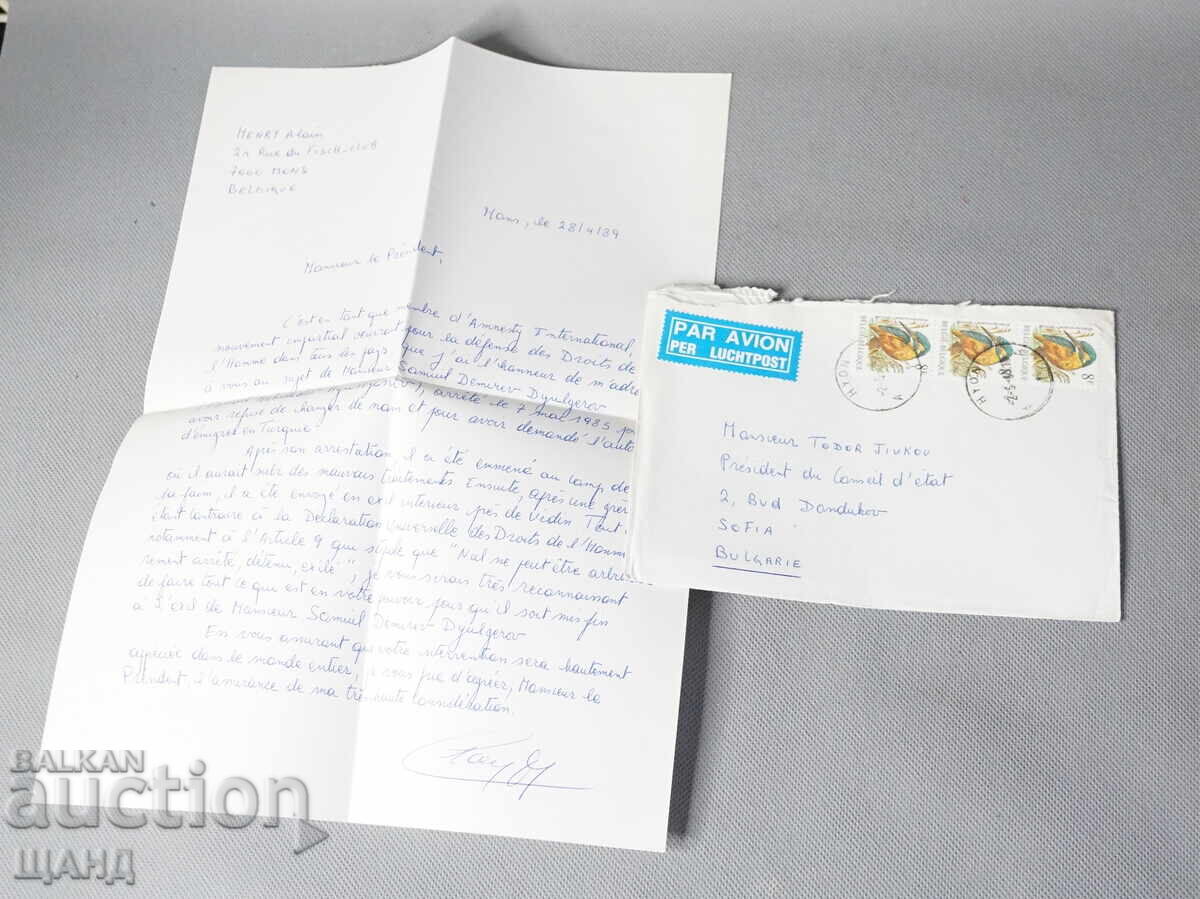 HENRY Alain
21 Rue du
7000 MONS
BELGIQUE
Mons, le 28/4/89
Monsieur le Président,
C'est en tant que membre d'Amnesty International,
mouvement impartial oeuvrant pour la défense des Droits de
l'Homme dans tous les pays que j'ai l'honneur de m'adre
à vous au sujet de Monsieur Samuil Demirev Dyulgerov
arrêté le 7 mai 1985 pour
avoir refusé de changer de nom et pour avoir demandé l'auto
d'émigrer en Turquie.
Après son arrestation, il a été emmené au camp de
où il aurait subi des mauvais traitements. Ensuite, après une grè
la faim, il a été envoyé en exil intérieur près de Vidin. Tout
étant contraire à la Déclaration Universelle des Droits de l'Homm
notamment à l'Article 9 qui stipule que "Nul ne peut être arbitrai
rement arrêté, détenu, exilé", je vous serais très reconnaissant
de faire tout ce qui est en votre pouvoir pour qu'il soit mis fin
à l'exil de Monsieur Samuil Demirev Dyulgerov
En vous assurant que votre intervention sera hautement
appréciée dans le monde entier, je vous prie d'agréer, Monsieur le
Président, l'assurance de ma très haute considération.
PAR AVION
PER LUCHTPOST
BELGIE-BELGIQUE
8F
BELGIE-BELGIQUE
8F
BELGIE-BELGIQUE
8F
Monsieur TODOR JIVKOV
Président du Conseil d'état
2, Bvd Dondukov
SOFIA
BULGARIE
BALKAN
auction
ЩАНД